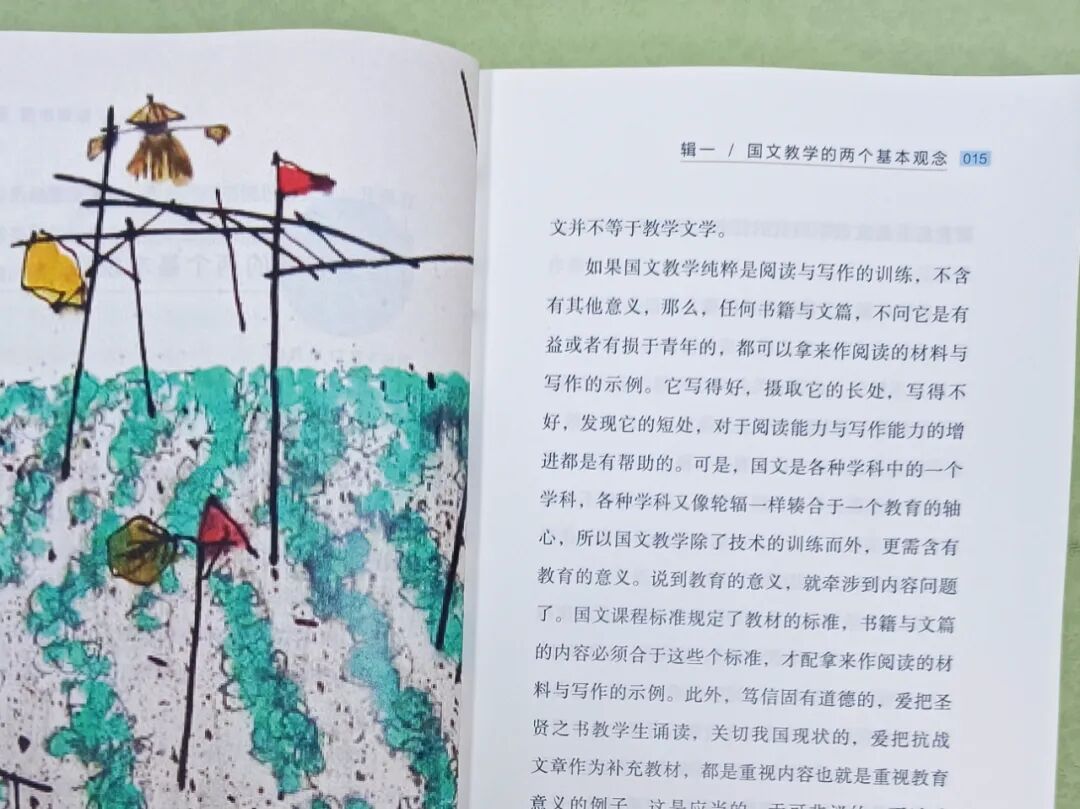 辑一 / 国文教学的两个基本观念 015
文并不等于教学文学。
如果国文教学纯粹是阅读与写作的训练，不含
有其他意义，那么，任何书籍与文篇，不问它是有
益或者有损于青年的，都可以拿来作阅读的材料与
写作的示例。它写得好，摄取它的长处，写得不
好，发现它的短处，对于阅读能力与写作能力的增
进都是有帮助的。可是，国文是各种学科中的一个
学科，各种学科又像轮辐一样辏合于一个教育的轴
心，所以国文教学除了技术的训练而外，更需含有
教育的意义。说到教育的意义，就牵涉到内容问题
了。国文课程标准规定了教材的标准，书籍与文篇
的内容必须合于这些个标准，才配拿来作阅读的材
料与写作的示例。此外，笃信固有道德的，爱把圣
贤之书教学生诵读，关切我国现状的，爱把抗战
文章作为补充教材，都是重视内容也就是重视教育
意义的例子。这是应当的，无可非议的。